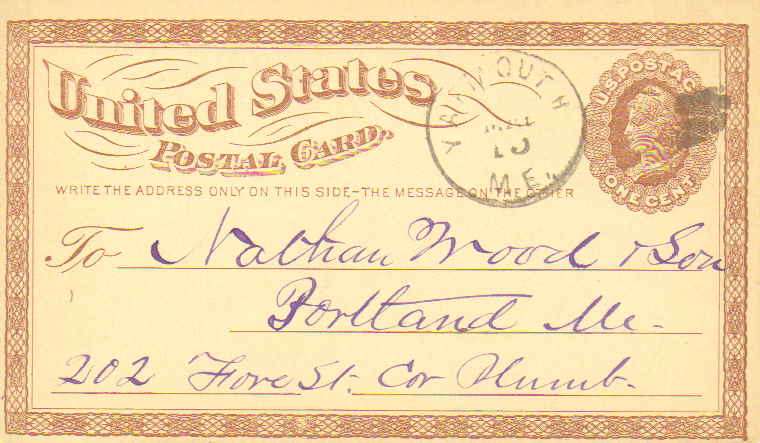 United States
POSTAL CARD.
YARMOUTH
10
ME.
U.S. POSTAGE
ONE CENT
WRITE THE ADDRESS ONLY ON THIS SIDE-THE MESSAGE ON THE OTHER
To Nathan Wood & Son
Portland Me.
202 Fore St. Cor Plumb.